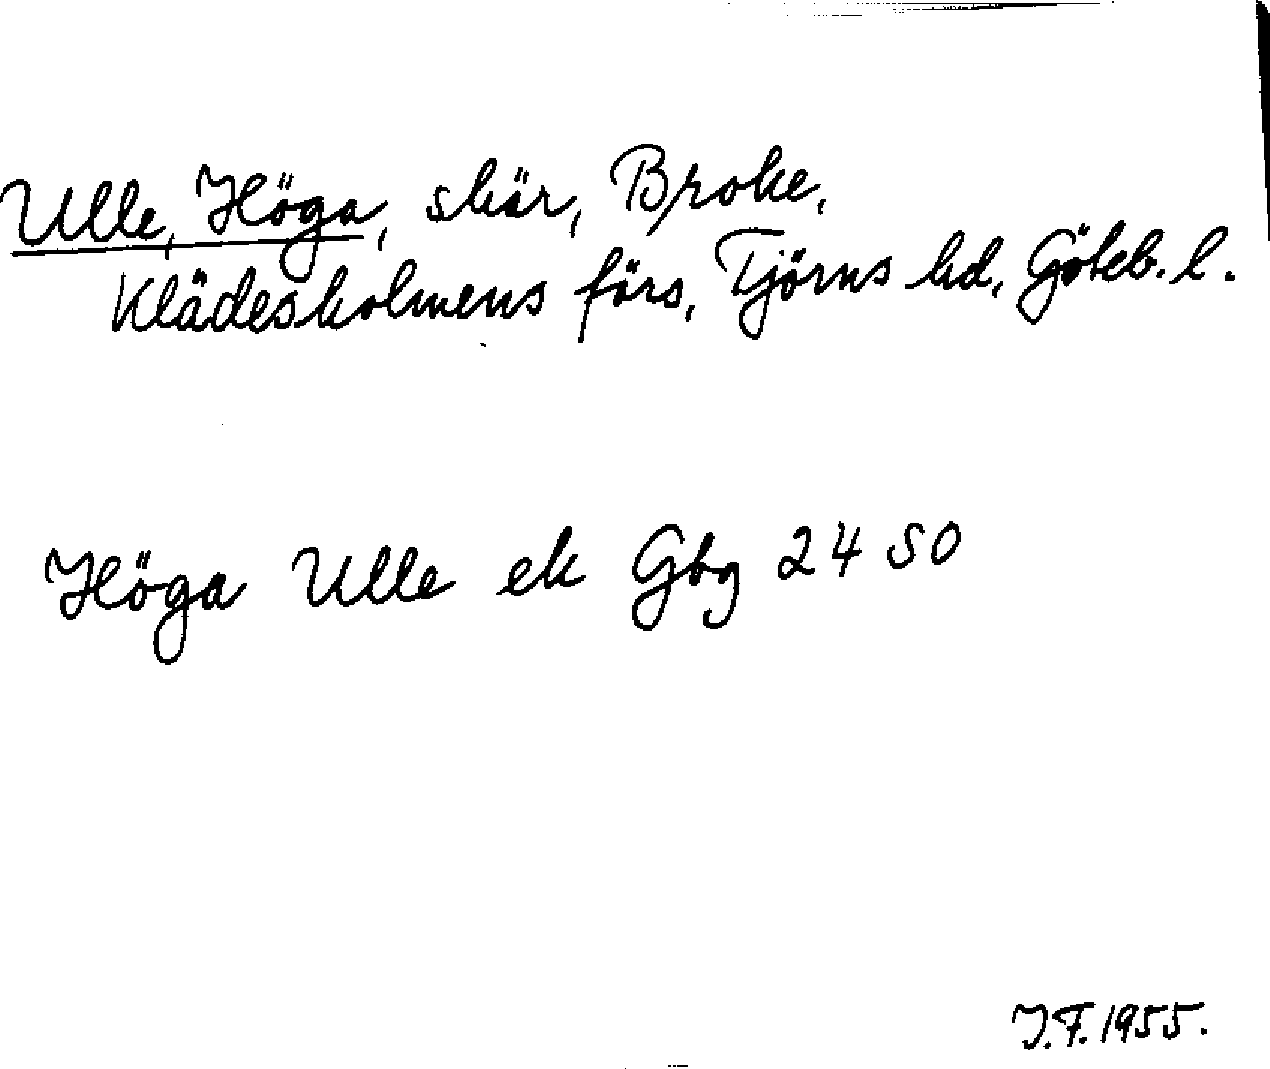 Ulle, Höga, skär, Broke,
Klädesholmens förs, Tjörns hd, Göteb. l.
Höga Ulle ek Gbg 2450
J.F. 1955.